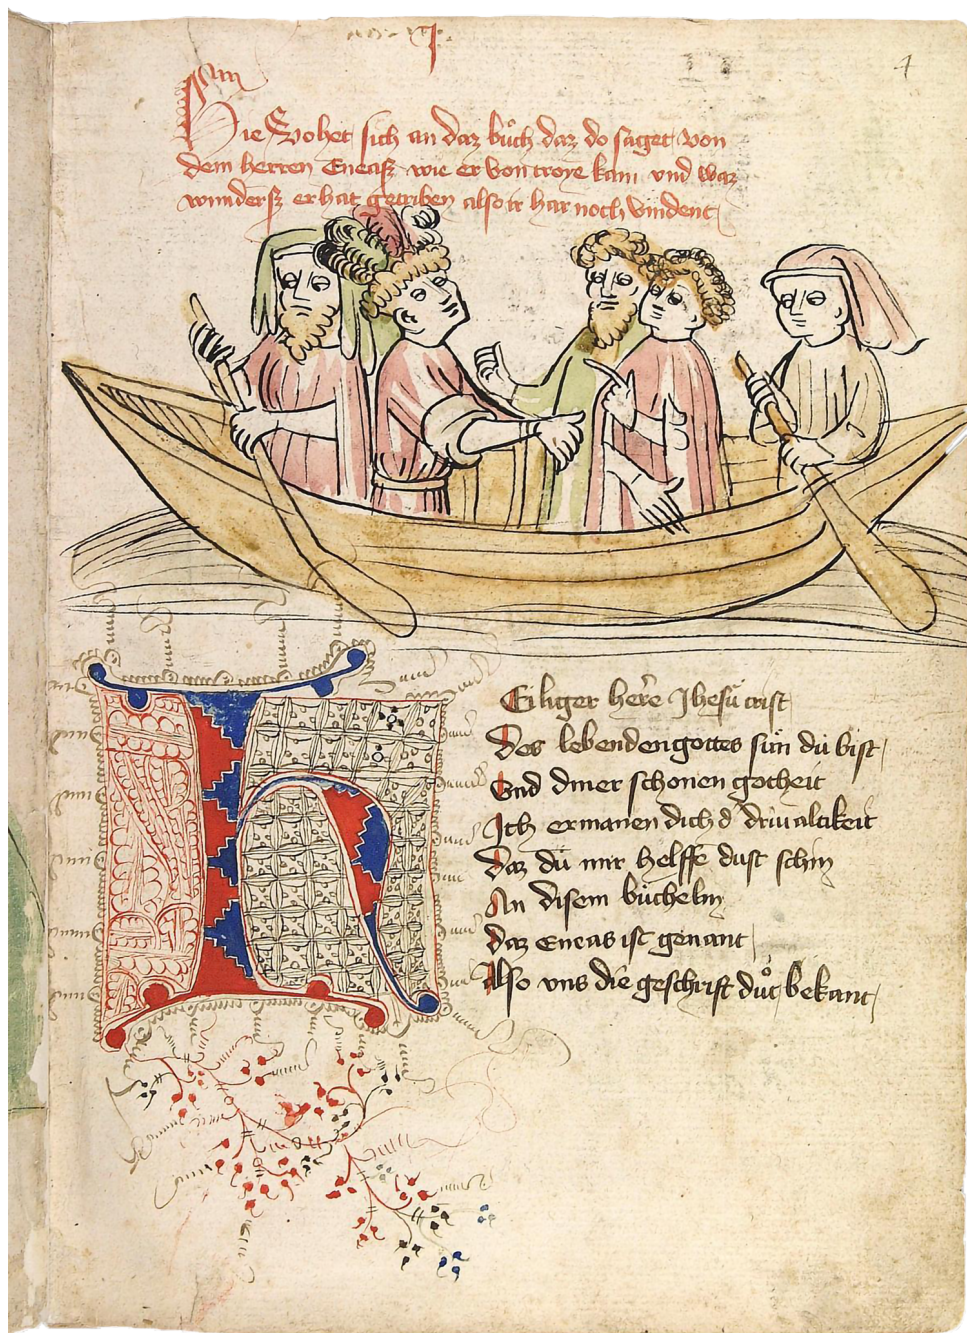 I
1
Hie Hohet sich an daz bůch daz do saget von
dem herren Eneasz wie er von troye kam vnd waz
wundersz er hat getriben also ir har noch vindent
HEiliger here Jhesu crist
Des lebenden gottes sun du bist
Vnd diner schonen gotheit
Ich ermanen dich d' driualtikeit
Daz du mir helffe dust schin
An disem büchelin
Daz Eneas ist genant
Also vns die geschrift důt bekant